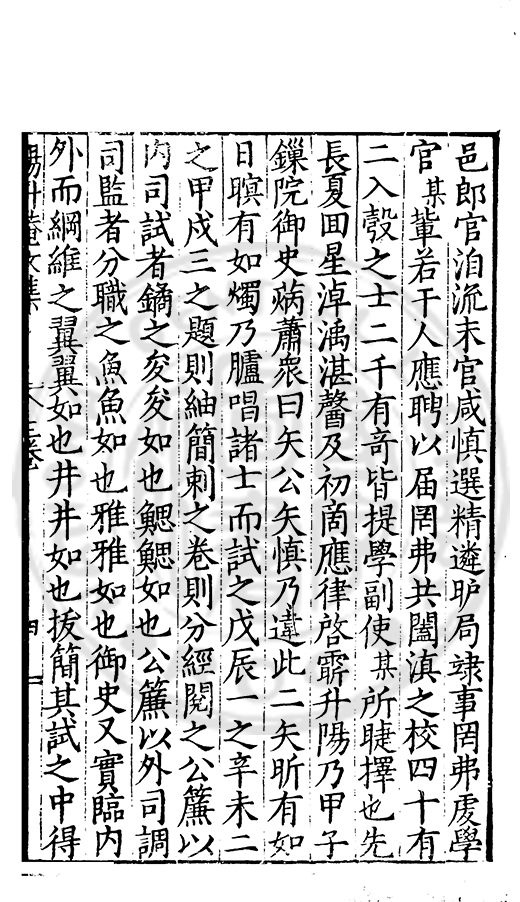 邑郎官洎流末官咸慎選精遴昈局竦事罔弗虔學
官某輩若干人應聘以届罔弗共闔滇之校四十有
二入彀之士二千有奇皆提學副使某所睫擇也先
長夏囬星淖潏湛馨及初啇應律啓霨升陽乃甲子
鏁院御史蕭衆曰矢公矢慎乃違此二矢昕有如
日暝有如燭乃臚唱諸士而試之戊辰一之辛未二
之甲戍三之題則紬簡刺之卷則分經閱之公簾以
内司試者鐍之夋夋如也鰓鰓如也公簾以外司調
司監者分職之魚魚如也雅雅如也御史又實臨内
外而綱維之翼翼如也井井如也拔簡其試之中得
楊升菴文集 卷 四